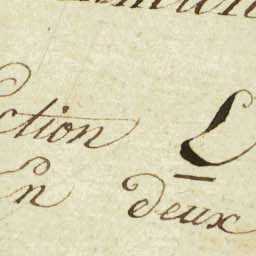 ction L
En deux